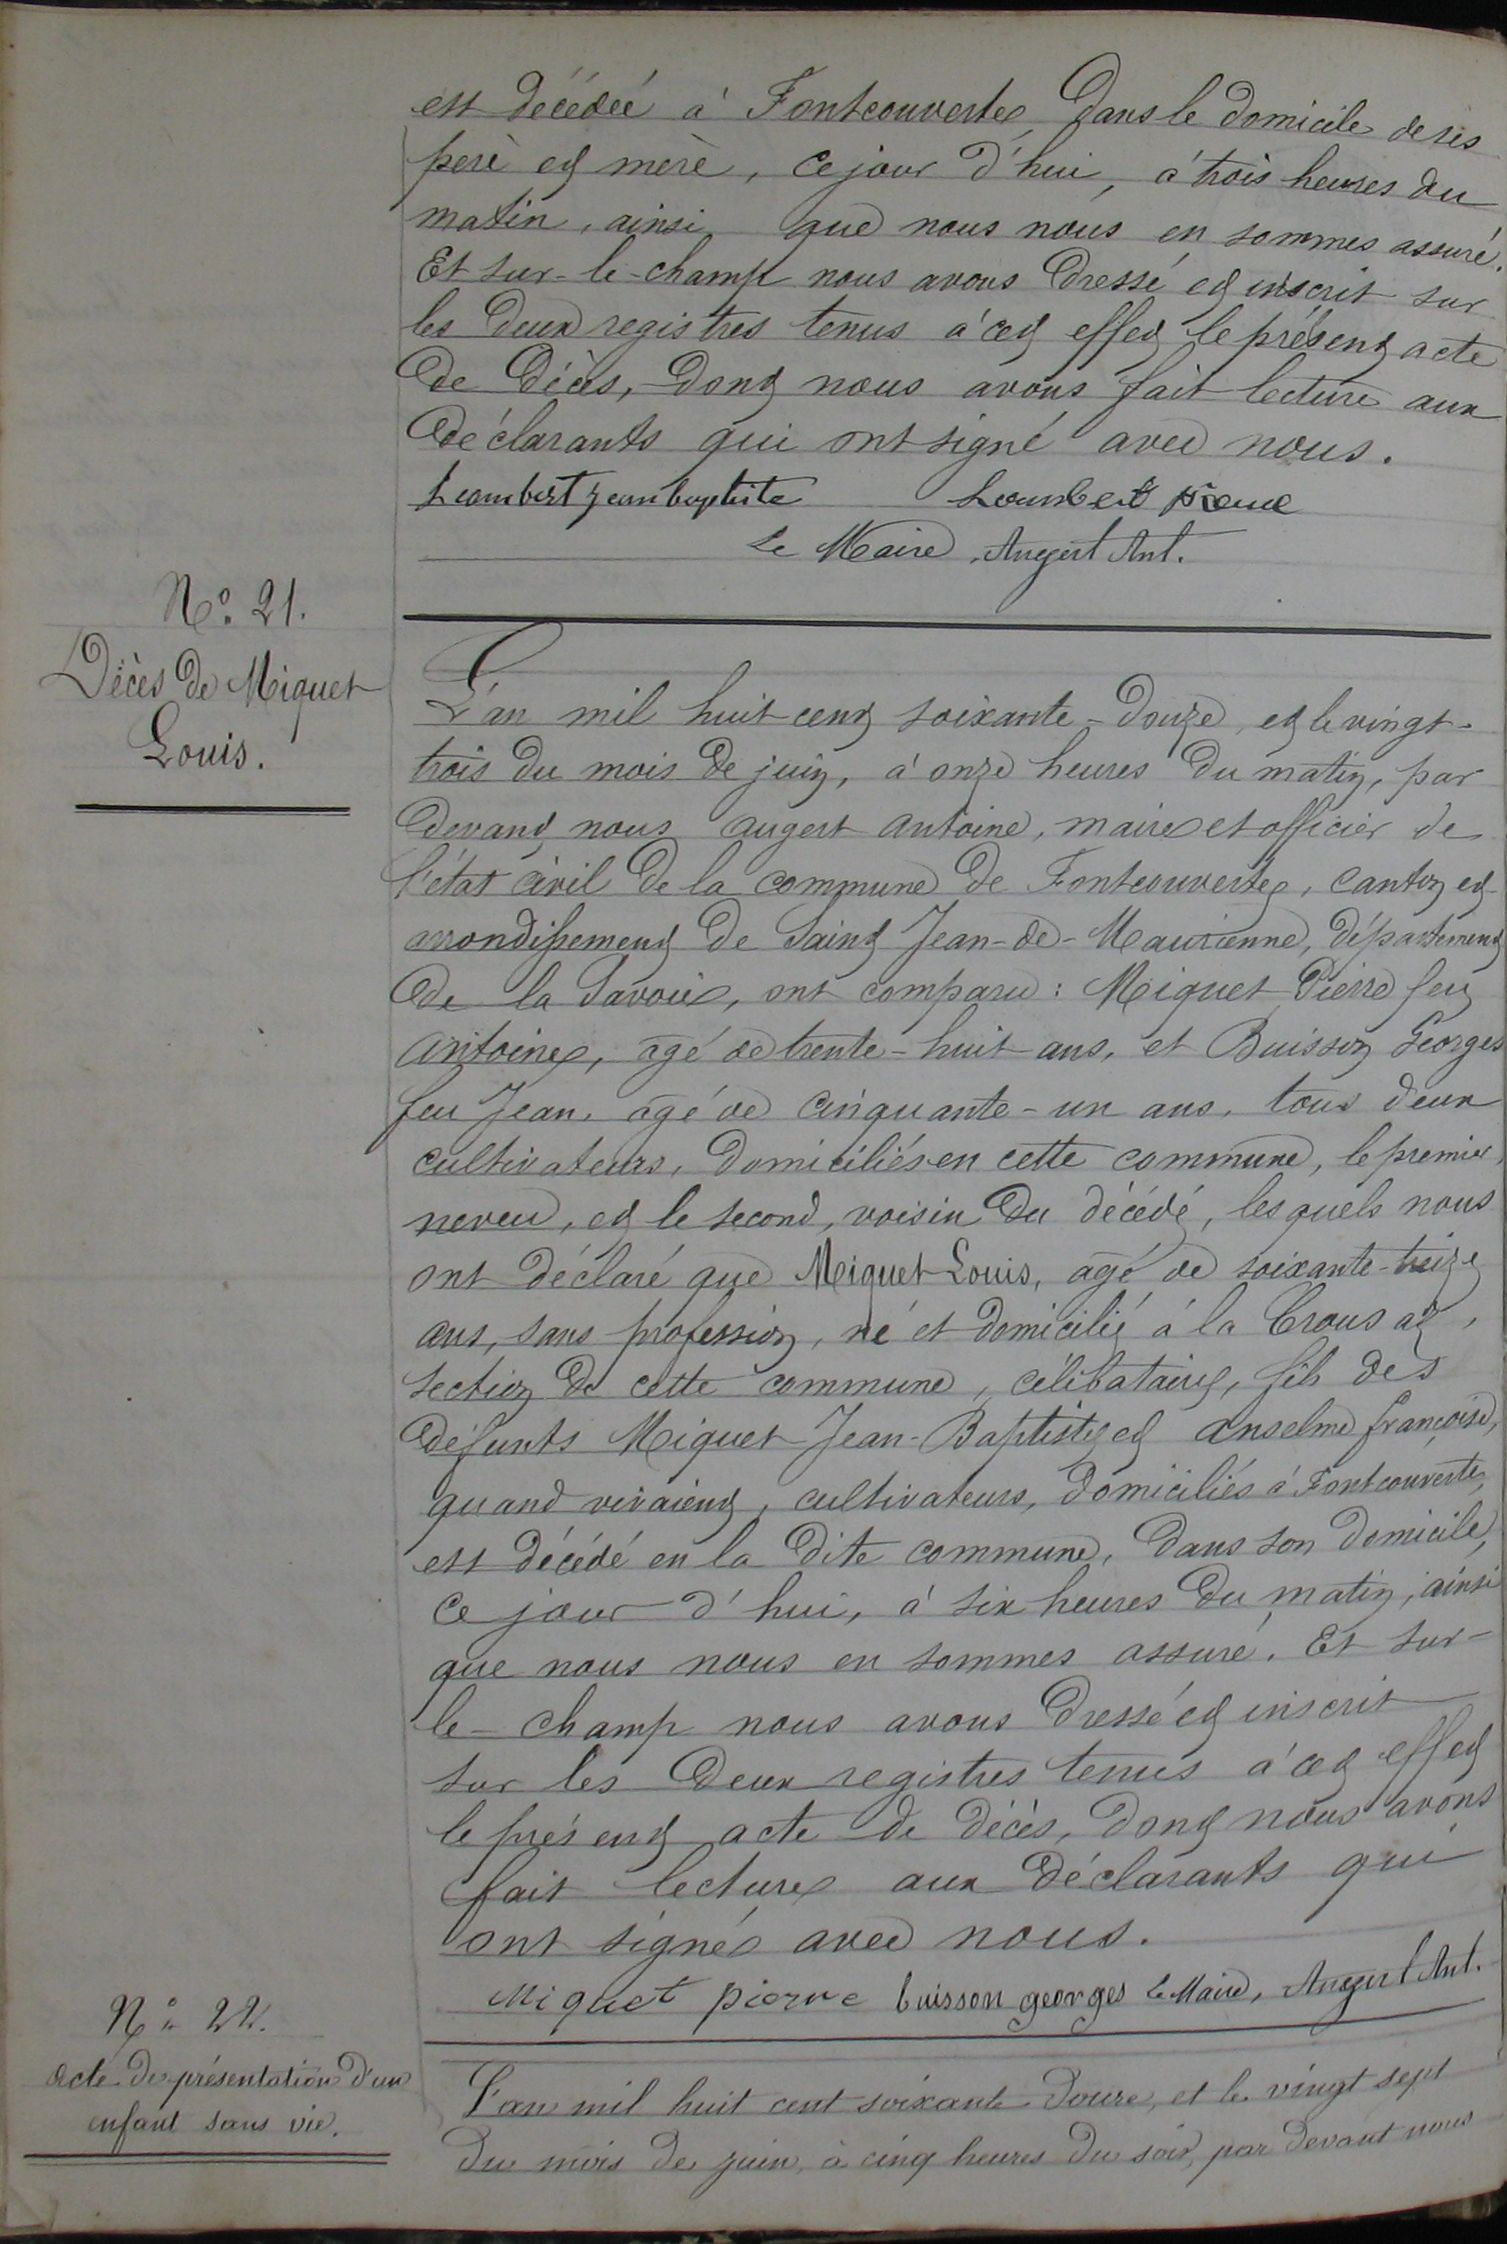 est décédée à Fontcouverte, dans le domicile de ses
père et mère, ce jour d'hui, à trois heures du
matin, ainsi que nous nous en sommes assuré.
Et sur-le-champ nous avons dressé et inscrit sur
les deux registres tenus à cet effet le présent acte
de décès, dont nous avons fait lecture aux
déclarants qui ont signé avec nous.
Lambert jean baptiste
Le Maire, Augert Ant.
N° 21.
Décès de Miquet
Louis.
L'an mil huit cent soixante-douze, et le vingt-
trois du mois de juin, à onze heures du matin, par
devant nous Augert Antoine, maire et officier de
l'état civil de la commune de Fontcouverte, canton et
arrondissement de Saint Jean-de-Maurienne, département
de la Savoie, ont comparu : Miquet Pierre feu
Antoine, âgé de trente-huit ans, et Buisson Georges
feu Jean, âgé de cinquante-un ans, tous deux
cultivateurs, domiciliés en cette commune, le premier,
neveu, et le second, voisin du décédé, lesquels nous
ont déclaré que Miquet Louis, âgé de soixante-treize
ans, sans profession, né et domicilié à la Crousaz,
section de cette commune, célibataire, fils des
défunts Miquet Jean-Baptiste et Anselme françoise,
quand vivaient, cultivateurs, domiciliés à Fontcouverte,
est décédé en la dite commune, dans son domicile,
ce jour d'hui, à six heures du matin, ainsi
que nous nous en sommes assuré. Et sur-
le-champ nous avons dressé et inscrit
sur les deux registres tenus à cet effet
le présent acte de décès, dont nous avons
fait lecture aux déclarants qui
ont signé avec nous.
Miquet pierre buisson georges Le Maire, Augert Ant.
N° 22.
Acte de présentation d'un
enfant sans vie.
L'an mil huit cent soixante douze, et le vingt sept
du mois de juin, à cinq heures du soir, par devant nous